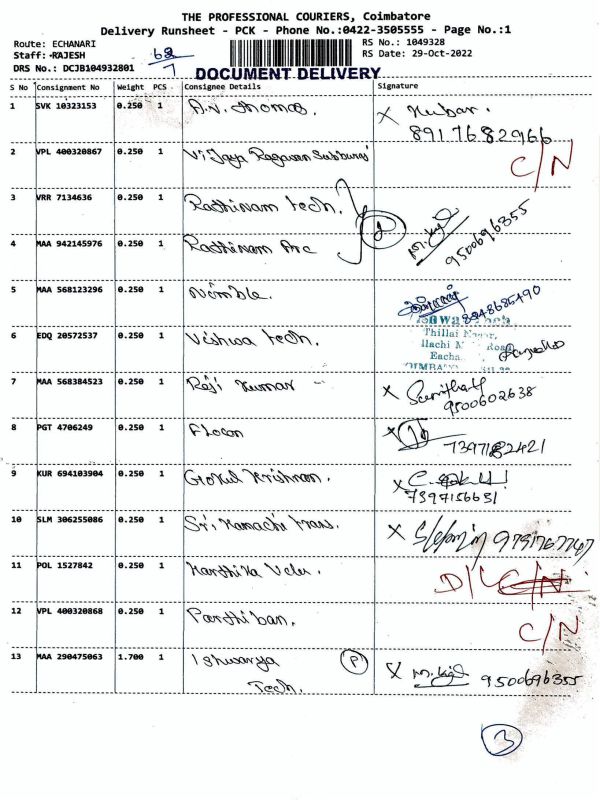 THE PROFESSIONAL COURIERS, Coimbatore
Delivery Runsheet - PCK - Phone No.:0422-3505555 - Page No.:1
Route: ECHANARI RS No.: 1049328
Staff: RAJESH RS Date: 29-Oct-2022
DRS No.: DCJB104932801 DOCUMENT DELIVERY
S No Consignment No Weight PCS Consignee Details Signature
1 SVK 10323153 0.250 1 A.V. Thomas. X Kuban.
8917682966
2 VPL 400320867 0.250 1 Vijaya Ragavan C/N
3 VRR 7134636 0.250 1 Rathinam Tech.
9500696355
4 MAA 942145976 0.250 1 Rathinam Arc
5 MAA 568123296 0.250 1 Nimble.
6 EDQ 20572537 0.250 1 Vishwa Tech. Thillai Nagar,
7 MAA 568384523 0.250 1 Raji Kumar X
9500602638
8 PGT 4706249 0.250 1 Flocon X
7397182421
9 KUR 694103904 0.250 1 Gokul Krishnan. X
7397156631
10 SLM 306255086 0.250 1 Sri Kamachi Trans. X 9791767767
11 POL 1527842 0.250 1 Karthika Velu. D/L C/N
12 VPL 400320868 0.250 1 Parthiban. C/N
13 MAA 290475063 1.700 1 Ishwarya P X 9500696355
Tech.
3